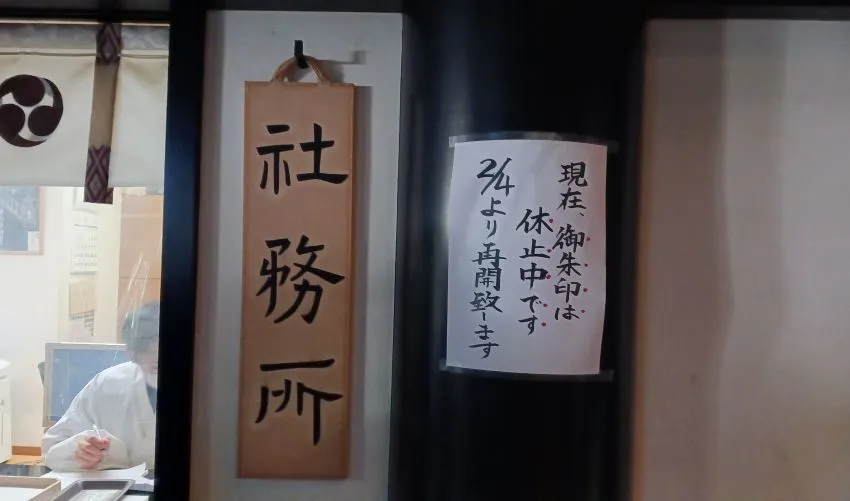 社務所
現在、御朱印は
休止中です
2/4より再開致します